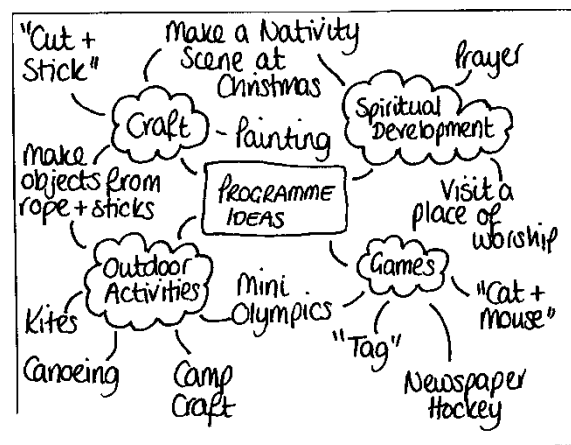 "Cut +
Stick"
Make a Nativity
Scene at
Christmas
Prayer
Craft
- Painting
Spiritual
Development
Make
objects from
rope + sticks
PROGRAMME
IDEAS
Visit a
place of
worship
Outdoor
Activities
Mini
Olympics
Games
"Cat +
Mouse"
Kites
"Tag"
Canoeing
Camp
Craft
Newspaper
Hockey